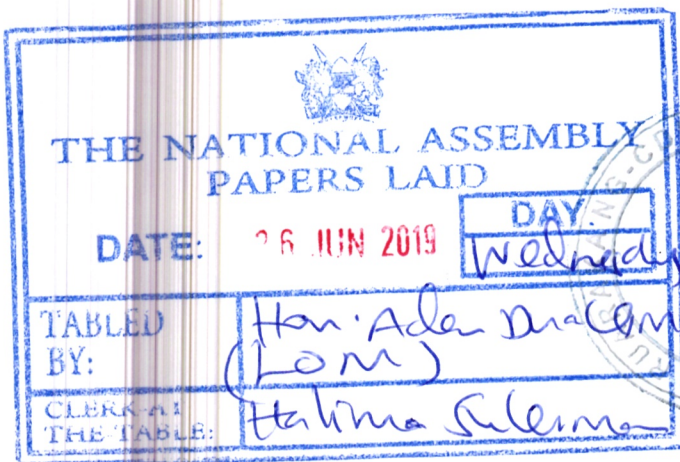 THE NATIONAL ASSEMBLY
PAPERS LAID
DATE: 26 JUN 2019
DAY.
Wednesday
TABLED BY:
Hon. Aden Duale, M
(LOM)
CLERK AT THE TABLE:
Halima Suleiman